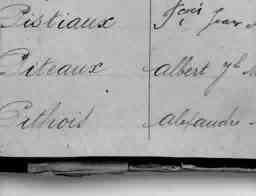 Pistiaux Jean
Piteaux albert
Pithois alexandre